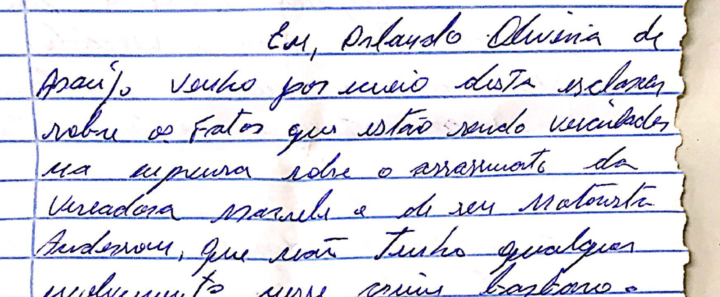 Eu, Orlando Oliveira de
Araújo venho por meio desta esclarecer
sobre os Fatos que estão sendo veiculados
na imprensa sobre o assassinato da
Vereadora Marielle e de seu Motorista
Anderson, que não Tenho qualquer
envolvimento nesse crime barbaro.